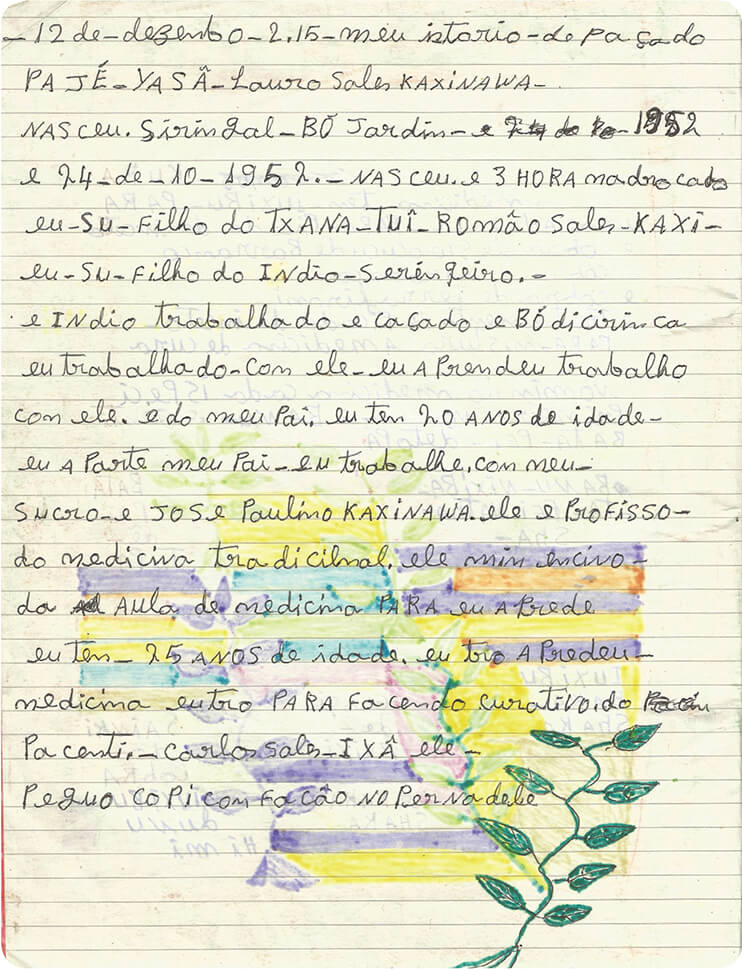 - 12 de - dezenbo - 2.15 - meu istorio - de paçado
PAJÉ - YASÃ - Lauro Sales KAXINAWA -
NASceu. Siringal - BÓ Jardin - e 1952
e 24 - de - 10 - 1952. - NASceu. e 3 HORA madrocado
eu - Su - Filho do TXANA - TUĨ - ROMÃO Sales - KAXI -
eu - Su - Filho do INdio - Serêngeiro. -
e INdio trabalhado e caçado e BÓ dicirinca
eu trabalhado - com ele - eu APrendeu trabalho
com ele. e do meu Pai. eu ten 20 ANOS de idade -
eu A Parte meu Pai - eu trabalhe. com meu -
Sucro - e JOSE Paulino KAXINAWA. ele e PROFISSO -
do medicina tradicilnal. ele min encivo -
da AULA de medicina PARA eu A Prede
eu ten - 25 ANOS de idade. eu tro A Predeu -
medicina entro PARA Facendo curativo. do
Pacenti. - Carlos Sales - IXÃ ele -
Peguo coPi con Facão NO Pernadele